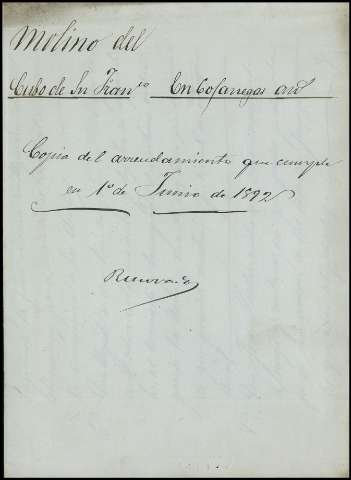 Molino del
Cubo de Sn Franco En Cofarnegas
Copia del arrendamiento que cumple
en 1º de Junio de 1892
Renovado